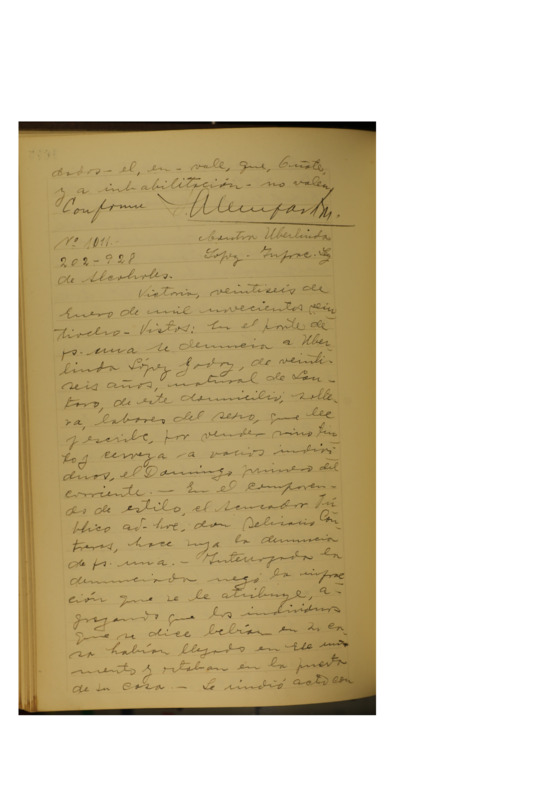 dados - el, en - vale, que,
y a inhabilitación - no valen
Conforme
Nº 1011. Contra Uberlinda
202-928 López - Infrac. Ley
de Alcoholes.
Victoria, veintiseis de
Enero de mil novecientos vein
tiocho - Vistos: En el parte de
fs. una se denuncia a Uber-
linda López Godoy, de veinti-
seis años, natural de Lau-
taro, de este domicilio, solte-
ra, labores del sexo, que lee
y escribe, por vender vino tin
to y cerveza a varios indivi
duos, el Domingo primero del
corriente. - En el comparen-
do de estilo, el Acusador Pú
blico ad-hoc, don Belisario Con
treras, hace suya la denuncia
de fs. una. - Interrogada la
denunciada negó la infrac
ción que se le atribuye, a-
gregando que los individuos
que se dice bebían en su ca-
sa habían llegado en ese mo
mento y estaban en la puerta
de su casa. - Se rindió acto con